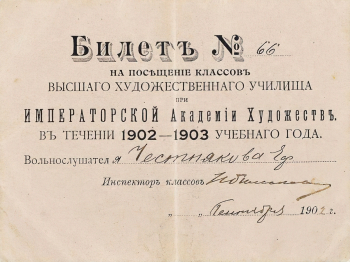 Билетъ № 66
НА ПОСѢЩЕНІЕ КЛАССОВЪ
ВЫСШАГО ХУДОЖЕСТВЕННАГО УЧИЛИЩА
ПРИ
ИМПЕРАТОРСКОЙ Академіи Художествъ.
ВЪ ТЕЧЕНІИ 1902—1903 УЧЕБНАГО ГОДА.
Вольнослушателя Честнякова Еф
Инспекторъ классовъ
„ „ Сентября 1902 г.